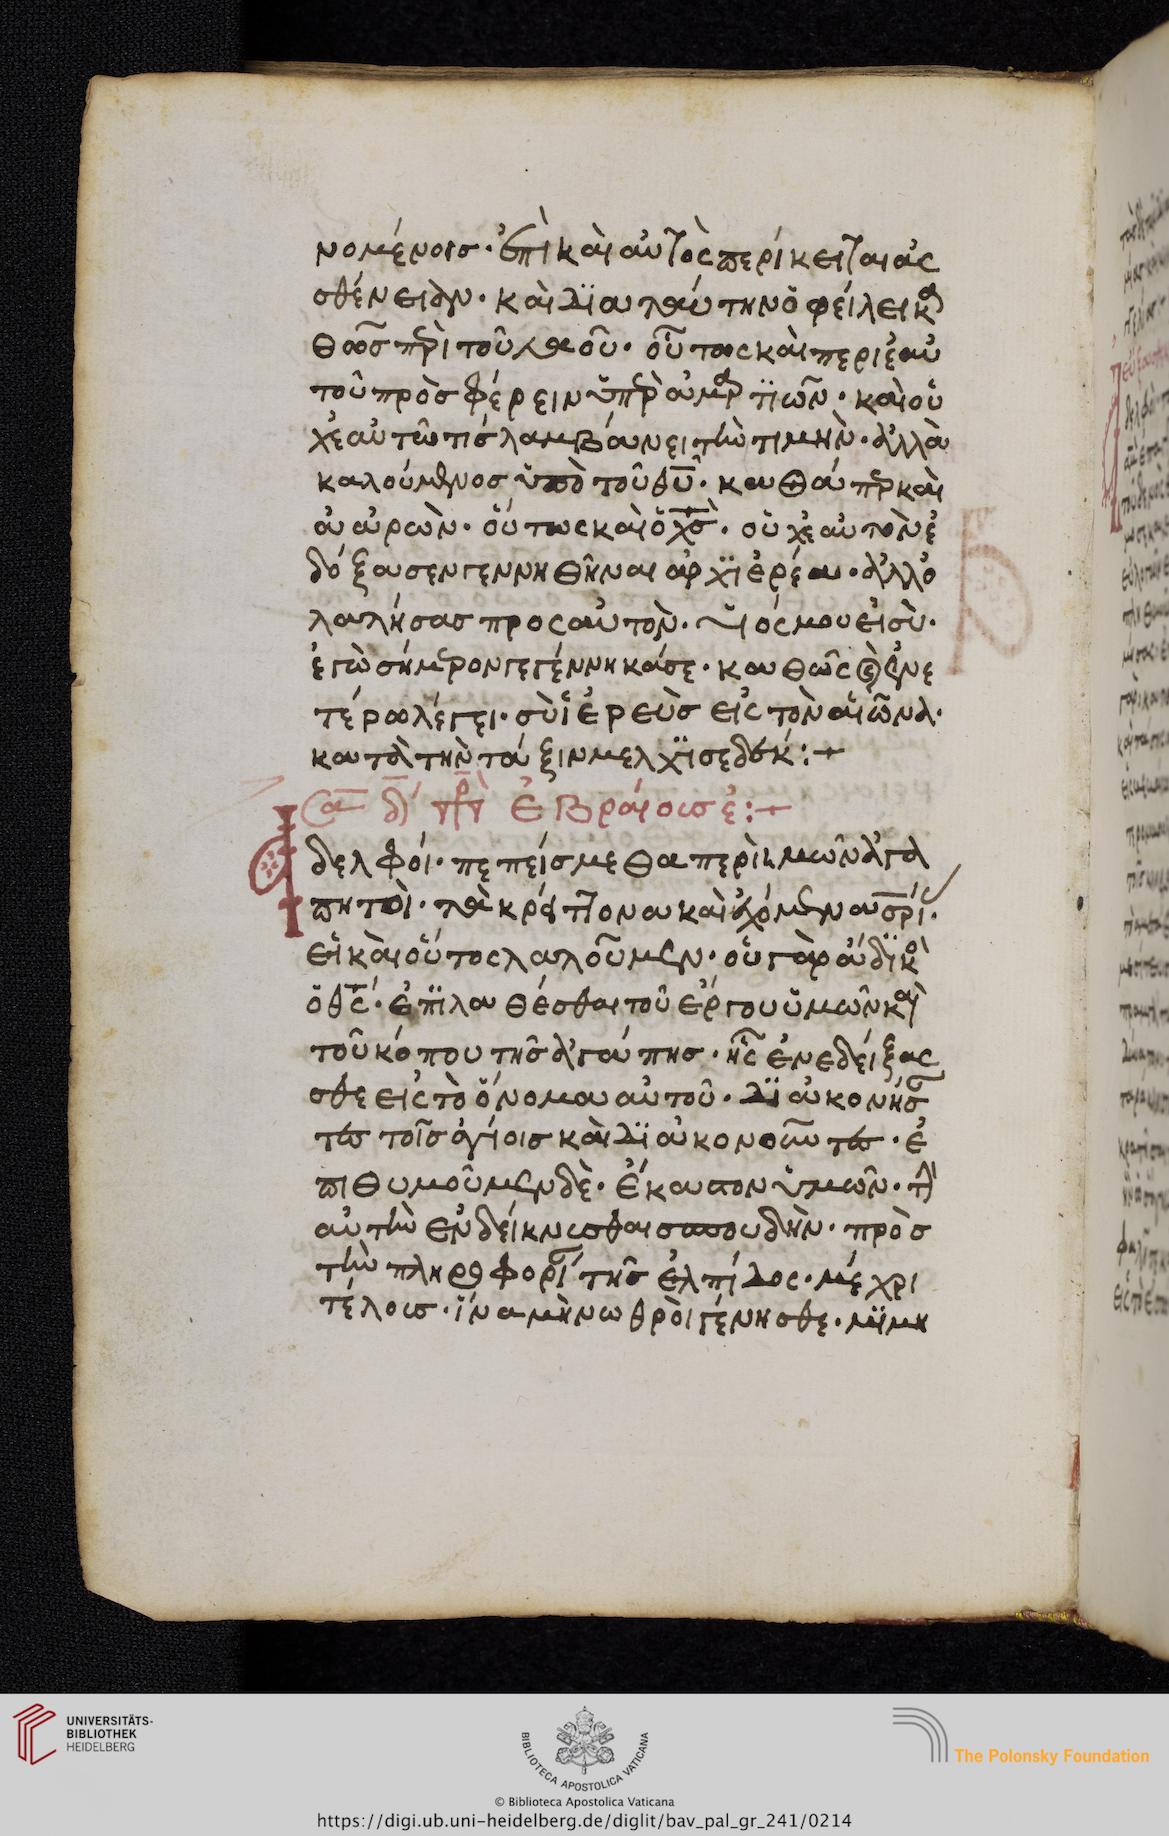 νομένοις· ἐπὶ καὶ αὐτὸς περίκειται ἀς
σθένειαν· καὶ διὰ ταύτην ὀφείλει κα
θῶς περὶ τοῦ λαοῦ· οὕτως καὶ περὶ ἑαυ
τοῦ προσφέρειν ὑπὲρ ἁμαρτιῶν· καὶ οὐ
χ ἑαυτῶ τίς λαμβάνει τὴν τιμὴν· ἀλλὰ
καλούμενος ὑπὸ τοῦ θυ· καθάπερ καὶ
ἀαρὼν· οὕτως καὶ ὁ χς· οὐχ ἑαυτὸν ἐ
δόξασεν γεννηθῆναι ἀρχιερέα· ἀλλ ὁ
λαλήσας προς αὐτὸν· υἱός μου εἶ σὺ·
ἐγὼ σήμερον γεγέννηκά σε· καθὼς καὶ ἐν ε
τέρω λέγει· σὺ ἱερεὺς εἰς τὸν αἰῶνα·
κατὰ τὴν τάξιν μελχισεδέκ:+
Σα δ΄ πρ ἑβραίοις ἐ:+
Ἀδελφοί· πεπείσμεθα περὶ ὑμῶν ἀγα
πητοὶ· τὰ κρείττονα καὶ ἐχόμενα σρί·
εἰ καὶ οὕτος λαλοῦμεν· οὐ γὰρ ἄδικο
ὁ θς· ἐπιλαθέσθαι τοῦ ἔργου ὑμῶν καὶ
τοῦ κόπου τῆς ἀγάπης· ἧς ἐνεδείξας
σθε εἰς τὸ ὄνομα αὐτοῦ· διακονήσ
τες τοῖς ἁγίοις καὶ διακονοῦντες· ἐ
πιθυμοῦμεν δὲ· ἕκαστον ὑμῶν· τὴν
αὐτὴν ἐνδείκνυσθαι σπουδὴν· πρὸς
τὴν πληροφορί τῆς ἐλπίδος· μέχρι
τέλους· ἵνα μὴ νωθροὶ γένησθε· μιμη
UNIVERSITÄTS-
BIBLIOTHEK
HEIDELBERG
BIBLIOTECA APOSTOLICA VATICANA
The Polonsky Foundation
© Biblioteca Apostolica Vaticana
https://digi.ub.uni-heidelberg.de/diglit/bav_pal_gr_241/0214